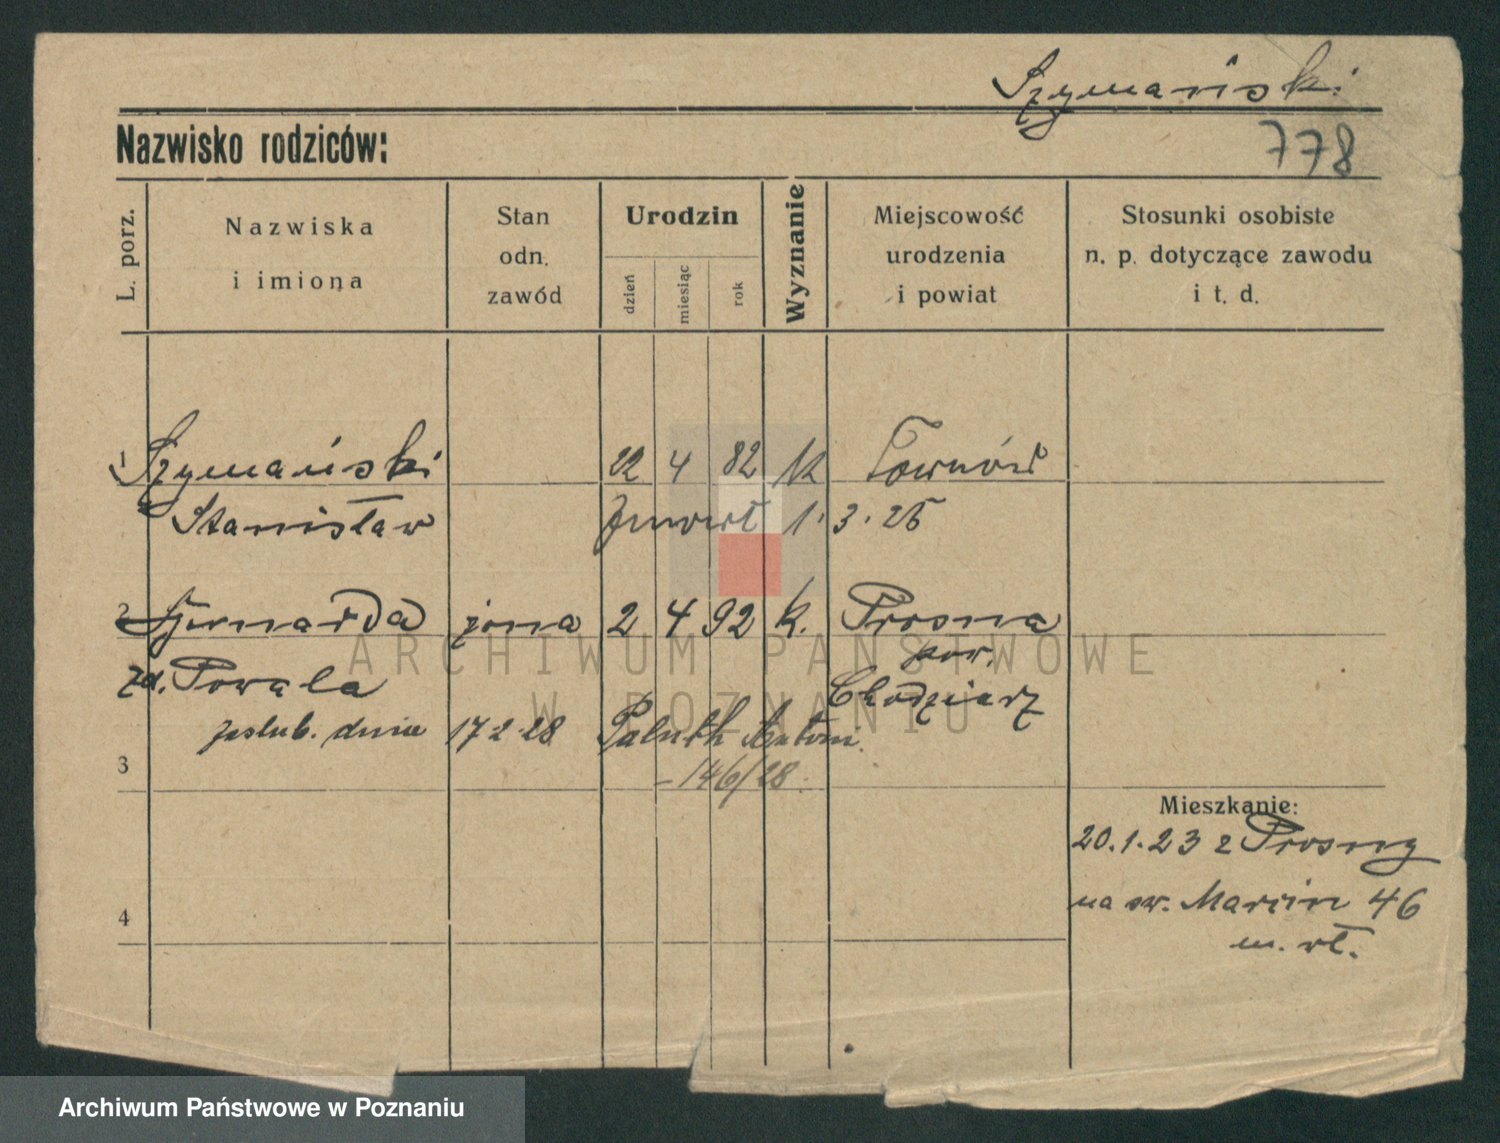 Szymański
Nazwisko rodziców:
778
L. porz.
Nazwiska
i imiona
Stan
odn.
zawód
Urodzin
dzień
miesiąc
rok
Wyznanie
Miejscowość
urodzenia
i powiat
Stosunki osobiste
n. p. dotyczące zawodu
i t. d.
1 Szymański 22 4 82 k
Stanisław zmarł 1. 3. 26
2 żona 2 4 92 k. Prosna
pow.
zd. Powala Chodzież
zaślub. dnia 17 2 28 Paluth Antoni.
3 - 146/28.
Mieszkanie:
20.1.23 z Prosny
na św. Marcin 46
4
m. wł.
ARCHIWUM PAŃSTWOWE
W POZNANIU
Archiwum Państwowe w Poznaniu